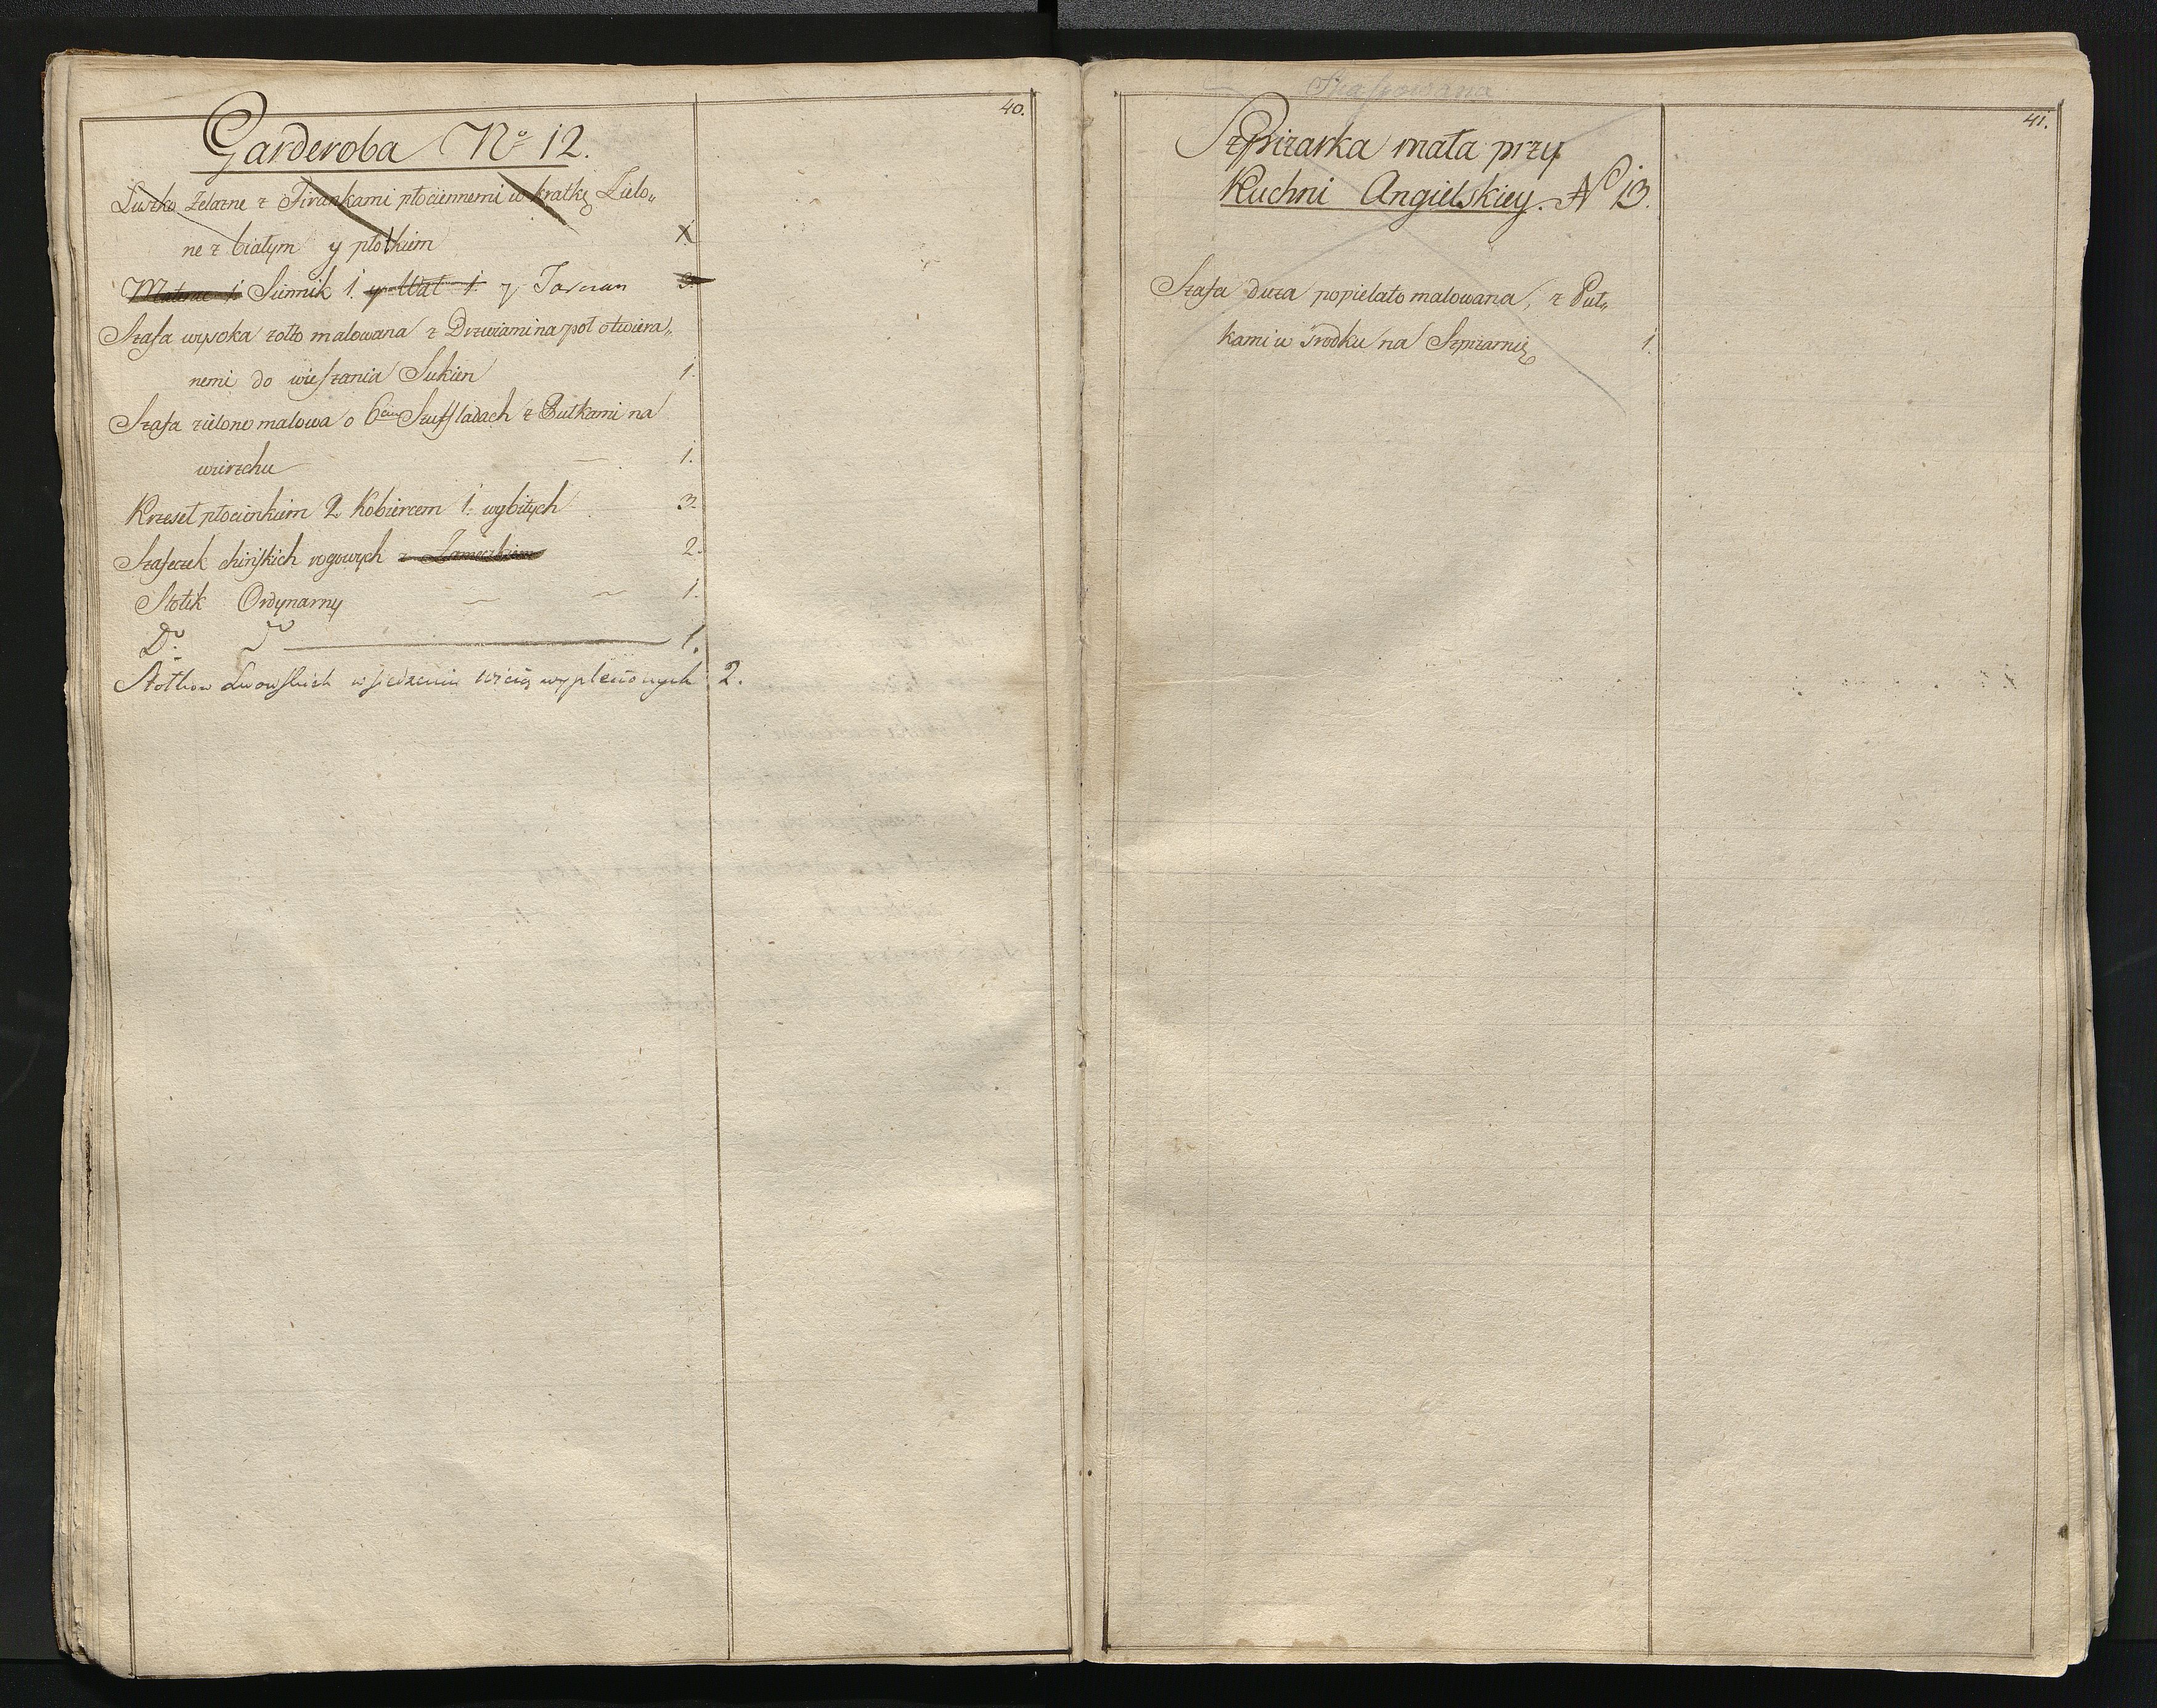 40.
Garderoba No 12.
Luzko Zelazne z Firankami płociennemi w kratkę Zielo„
ne z białym y płotkiem
Materac 1. Siennik 1. y Wał 1. y Tarczan 3.
Szafa wysoka zołto malowana z Drzwiami na poł otwiera„
nemi do wieszania Sukien 1.
Szafa zielono malowa o 6ciu Szufladach z Pułkami na
wierzchu 1.
Krzeseł płocienkiem 2. Kobiercem 1. wybitych 3.
Szafeczek chińskich rogowych z Zameczkiem 2.
Stolik Ordynarny 1.
Do. 1.
Stołkow Lwowskich w siedzeniu wicią wyplecionych 2.
41.
Szpiżarka mała przy
Kuchni Angielskiey. No 13.
Szafa duża popielato malowana, z Puł„
kami w środku na Szpiżarnię 1.